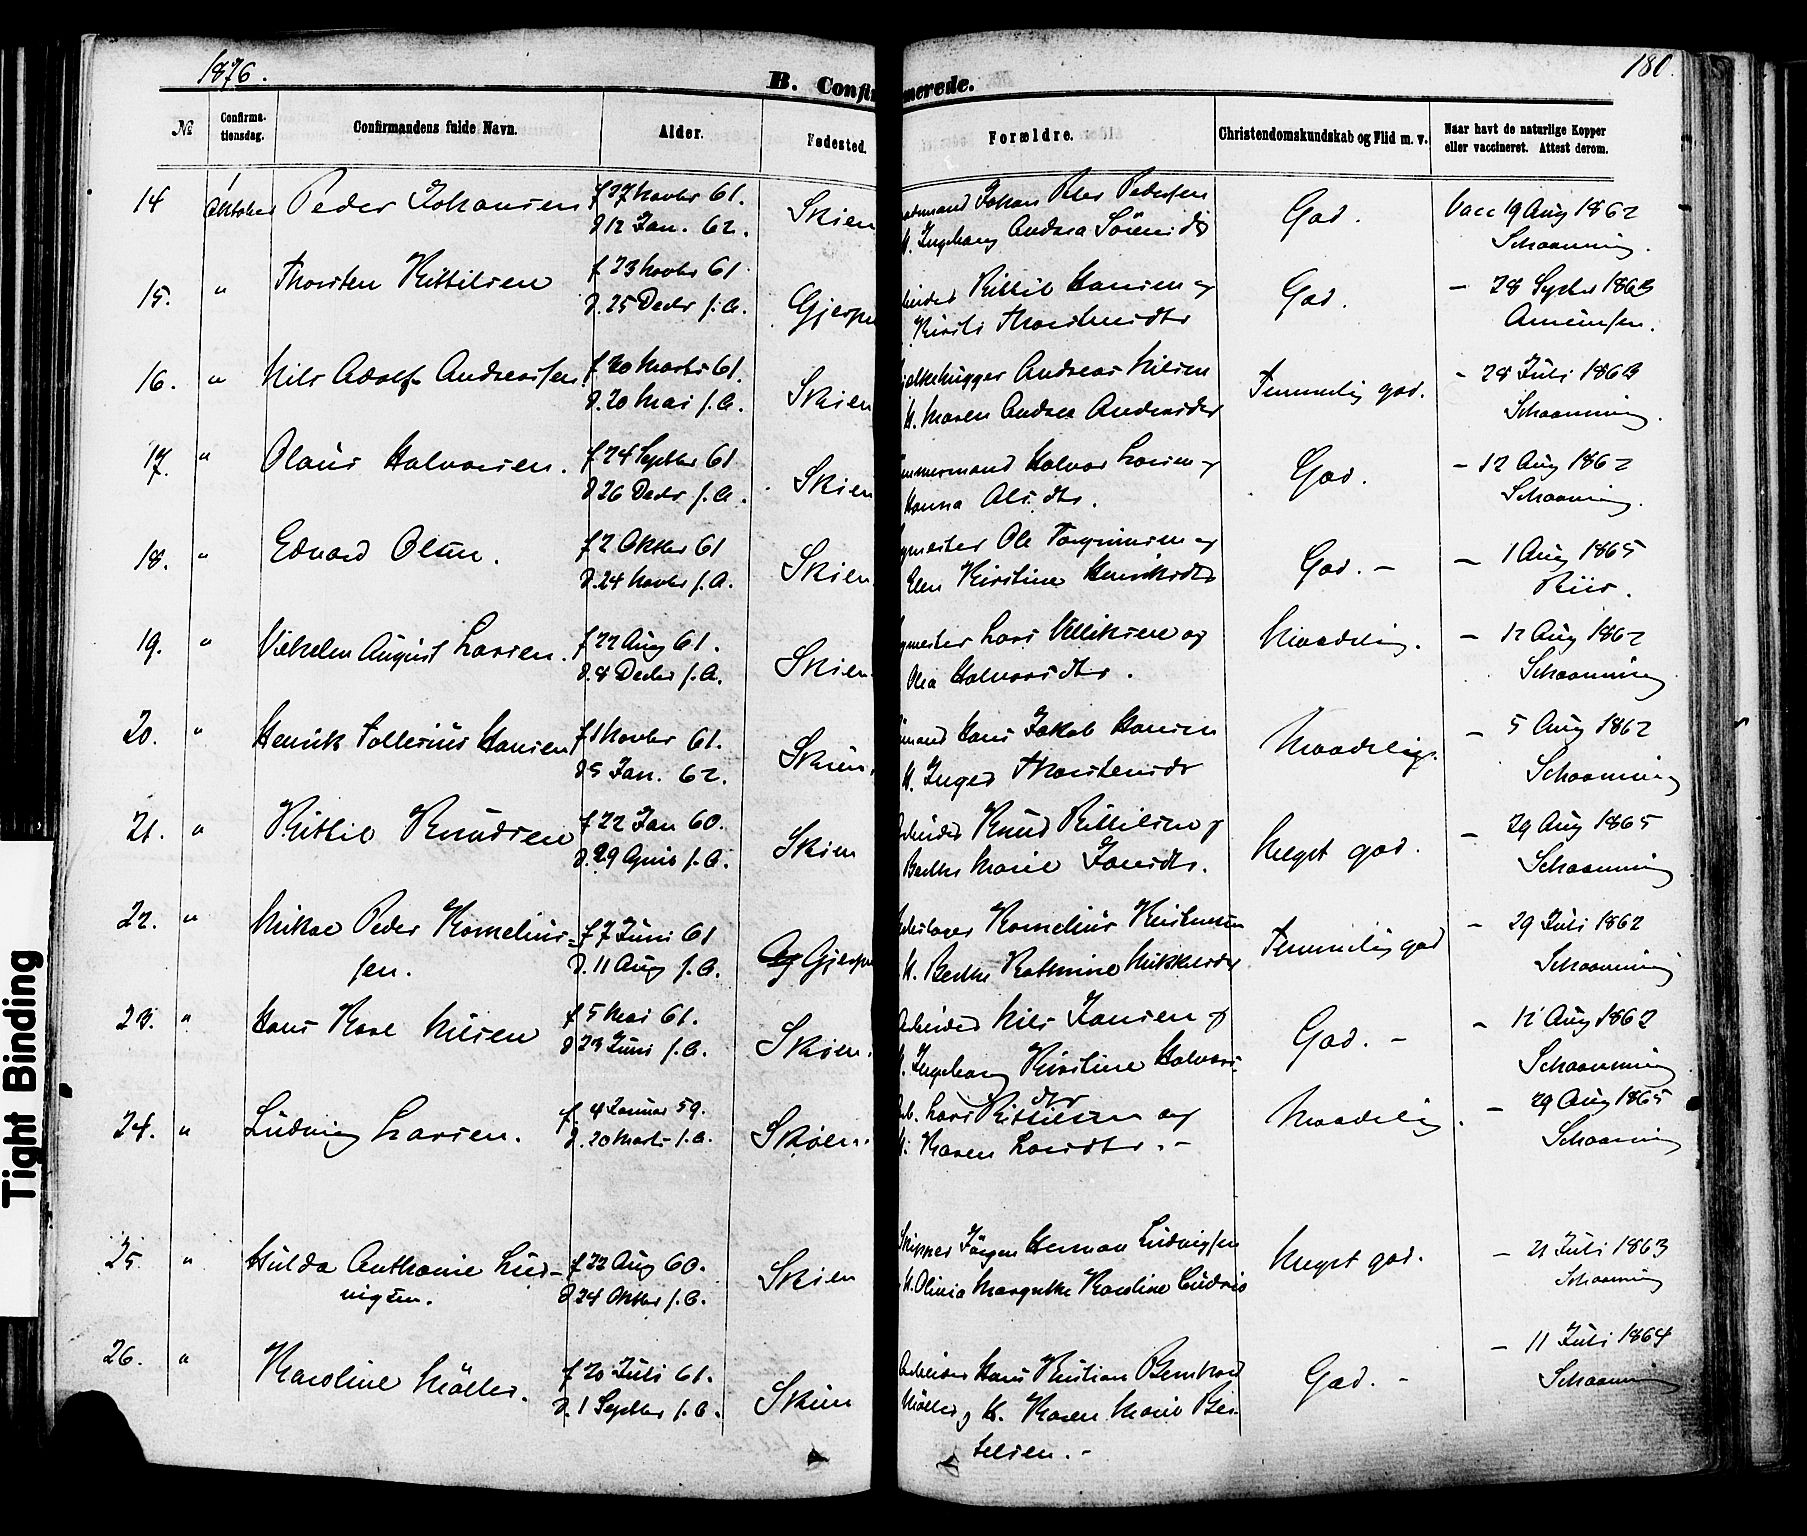 1876.
180.
B. Confirmerede.
№ Confirma-tionsdag. Confirmandens fulde Navn. Alder. Fødested. Forældre. Christendomskundskab og Flid m. v. Naar havt de naturlige Kopper eller vaccineret. Attest derom.
14 Oktober Peder Johansen f 27 Novbr 61. Skien Johan Peter Pedersen God. Vacc 19 Aug 1862
d 12 Jan. 62. Ingeborg Andrea Sørensdtr Schaanning.
15. " Thorsten Kittilsen f 23 Novbr 61 Gjerpe Kittil Hansen og God. — 28 Septbr 1863
d. 25 Decbr s. A. Kirsti Thorstensdtr Arneinsen.
16. " Nils Adolf Andreassen f 20 Marts 61. Skien Andreas Nilsen Temmelig god. - 28 Juli 1863
d. 20 Mai s. A. K. Maren Andrea Andersdtr Schaanning.
17. " Olaus Halvorsen. f 24 Septbr 61 Skien mmermand Halvor Larsen og God. - 12 Aug 1862
d 26 Decbr s. A. Hanna Alsdtr. Schaanning.
18. " Edvard Olsen. f 2 Oktbr 61 Skien gmester Ole Torgrimsen og God. — — 1 Aug 1865
d. 24 Novbr s. A. Elen Kirstine Henriksdtr Riis.
19. " Vilhelm August Larsen. f 22 Aug 61. Skien. gmester Lars Velliksen og Maadelig. — 12 Aug 1862
d. 8 Decbr s. A. Olea Halvorsdtr. Schaanning
20. " Henrik Tollerius Hansen f 1 Novbr 61. Skien. mand Hans Jakob Hansen Maadelig. — 5 Aug 1862
d 5 Jan. 62. K. Inger Thorstensdr Schaanning
21. " Kittil Knudsen f 22 Jan 60. Skien Arbeider Knud Kittilsen og Meget god. — 29 Aug 1865
d. 29 April s. A. Berthe Marie Jansdtr. Schaanning
22. " Mikal Peder Kornelius- f 7 Juni 61 Gjerpe Kornelius Kristensen Temmelig god — 29 Juli 1862
sen. d. 11 Aug s. A. K. Berthe Kathrine Mikkelsdtr Schaanning
23. " Hans Karl Nilsen f 5 Mai 61. Skien. Arbeider Nils Jansen og God. — — 12 Aug 1862
d 23 Juni s. A. K. Ingeborg Kirstine Halvors- Schaanning
dtr
24. " Ludvig Larsen. f. 4 Januar 59. Skien. Arb. Lars Kittilsen og Maadelig. — 29 Aug 1865
d. 20 Marts s. A. K. Karen Larsdtr. — Schaanning
25. " Hulda Anthonie Lud- f 22 Aug 60. Skien Skipper Jørgen Herman Ludvigsen Meget god. — 21 Juli 1863
vigsen. d 24 Oktbr s. A. K. Olivia Margrethe Karoline Ludvig Schaanning
26. " Karoline Møller. f 20 Juli 61. Skien Arbeider Hans Kristian Bernhard God. — — 11 Juli 1864
d. 1 Septbr s. A. Møller og K. Karen Marie Ber- Schaanning
telsen. —
Tight Binding